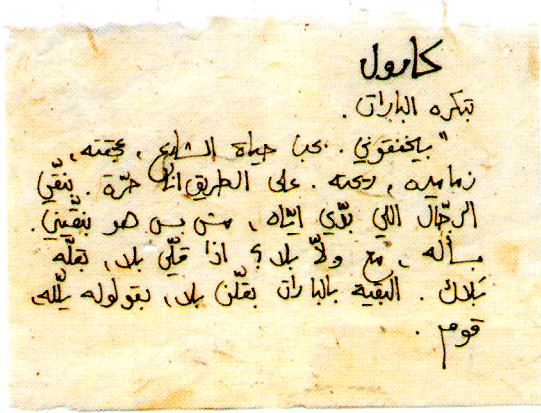 كارول
بتكره البارات.
"بيخنقوني. بحب حياة الشارع، عجقته،
زماميره، ريحته. على الطريق انا حرّة. بنقّي
الرجّال اللي بدّي ايّاه، مش بس هو بنقّيني.
بسأله، مع ولاّ بلا؟ اذا قلّي بلا، بقلّه
بَلاك. البقية بالبارات بقلّن بلا، بقولوله يلّله،
قوم.